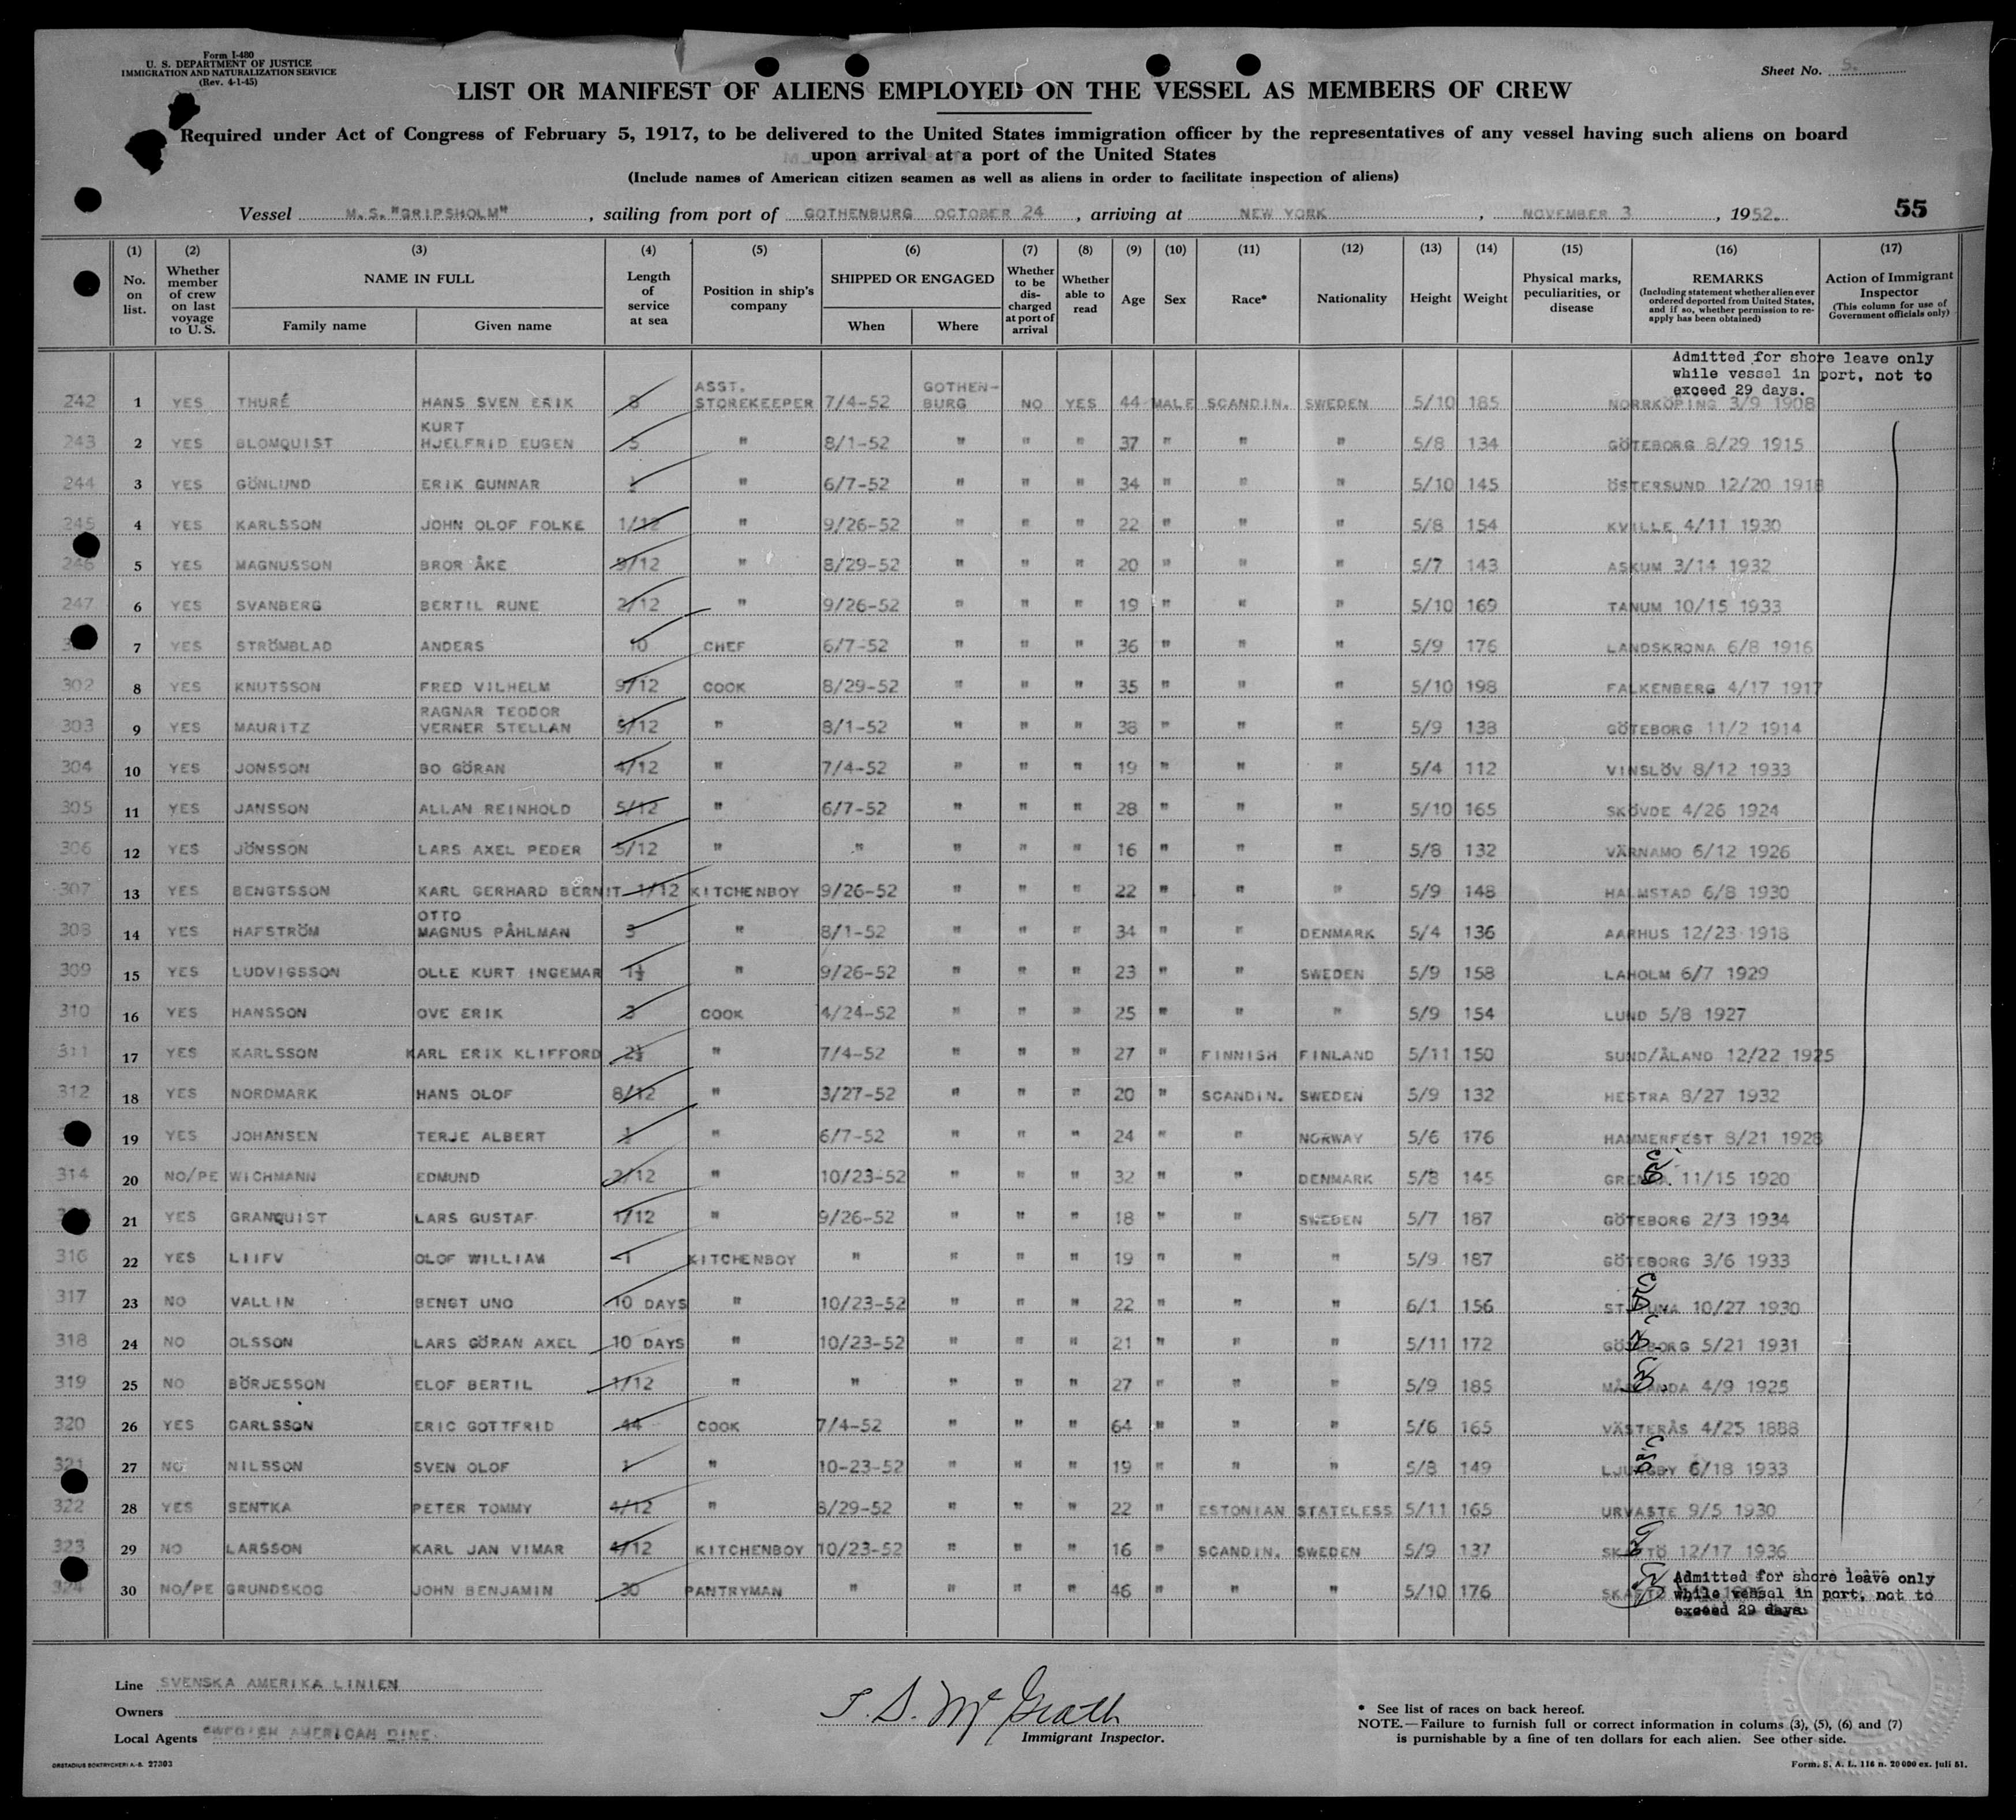 Form I-480
U. S. DEPARTMENT OF JUSTICE
IMMIGRATION AND NATURALIZATION SERVICE
(Rev. 4-1-45)
Sheet No. 5.
LIST OR MANIFEST OF ALIENS EMPLOYED ON THE VESSEL AS MEMBERS OF CREW
Required under Act of Congress of February 5, 1917, to be delivered to the United States immigration officer by the representatives of any vessel having such aliens on board
upon arrival at a port of the United States
(Include names of American citizen seamen as well as aliens in order to facilitate inspection of aliens)
Vessel M.S. "GRIPSHOLM", sailing from port of GOTHENBURG OCTOBER 24, arriving at NEW YORK, NOVEMBER 3, 1952. 55
(1) No. on list. (2) Whether member of crew on last voyage to U. S. (3) NAME IN FULL Family name Given name (4) Length of service at sea (5) Position in ship's company (6) SHIPPED OR ENGAGED When Where (7) Whether to be discharged at port of arrival (8) Whether able to read (9) Age (10) Sex (11) Race* (12) Nationality (13) Height (14) Weight (15) Physical marks, peculiarities, or disease (16) REMARKS (Including statement whether alien ever ordered deported from United States, and if so, whether permission to re-apply has been obtained) (17) Action of Immigrant Inspector (This column for use of Government officials only)
Admitted for shore leave only
while vessel in port, not to
exceed 29 days.
242 1 YES THURÉ HANS SVEN ERIK 8 ASST. STOREKEEPER 7/4-52 GOTHEN-BURG NO YES 44 MALE SCANDIN. SWEDEN 5/10 185 NORRKÖPING 3/9 1908
243 2 YES BLOMQUIST KURT HJELFRID EUGEN 5 " 8/1-52 " " " 37 " " " 5/8 134 GÖTEBORG 8/29 1915
244 3 YES GÖNLUND ERIK GUNNAR ½ " 6/7-52 " " " 34 " " " 5/10 145 ÖSTERSUND 12/20 1918
245 4 YES KARLSSON JOHN OLOF FOLKE 1/12 " 9/26-52 " " " 22 " " " 5/8 154 KVILLE 4/11 1930
246 5 YES MAGNUSSON BROR ÅKE 9/12 " 8/29-52 " " " 20 " " " 5/7 143 ASKUM 3/14 1932
247 6 YES SVANBERG BERTIL RUNE 2/12 " 9/26-52 " " " 19 " " " 5/10 169 TANUM 10/15 1933
7 YES STRÖMBLAD ANDERS 10 CHEF 6/7-52 " " " 36 " " " 5/9 176 LANDSKRONA 6/8 1916
302 8 YES KNUTSSON FRED VILHELM 9/12 COOK 8/29-52 " " " 35 " " " 5/10 198 FALKENBERG 4/17 1917
303 9 YES MAURITZ RAGNAR TEODOR VERNER STELLAN 9/12 " 8/1-52 " " " 38 " " " 5/9 138 GÖTEBORG 11/2 1914
304 10 YES JONSSON BO GÖRAN 4/12 " 7/4-52 " " " 19 " " " 5/4 112 VINSLÖV 8/12 1933
305 11 YES JANSSON ALLAN REINHOLD 5/12 " 6/7-52 " " " 28 " " " 5/10 165 SKÖVDE 4/26 1924
306 12 YES JÖNSSON LARS AXEL PEDER 5/12 " " " " " 16 " " " 5/8 132 VÄRNAMO 6/12 1926
307 13 YES BENGTSSON KARL GERHARD BERNIT 1/12 KITCHENBOY 9/26-52 " " " 22 " " " 5/9 148 HALMSTAD 6/8 1930
308 14 YES HAFSTRÖM OTTO MAGNUS PÅHLMAN 3 " 8/1-52 " " " 34 " " DENMARK 5/4 136 AARHUS 12/23 1918
309 15 YES LUDVIGSSON OLLE KURT INGEMAR 1½ " 9/26-52 " " " 23 " " SWEDEN 5/9 158 LAHOLM 6/7 1929
310 16 YES HANSSON OVE ERIK 3 COOK 4/24-52 " " " 25 " " " 5/9 154 LUND 5/8 1927
311 17 YES KARLSSON KARL ERIK KLIFFORD 2½ " 7/4-52 " " " 27 " FINNISH FINLAND 5/11 150 SUND/ÅLAND 12/22 1925
312 18 YES NORDMARK HANS OLOF 8/12 " 3/27-52 " " " 20 " SCANDIN. SWEDEN 5/9 132 HESTRA 8/27 1932
19 YES JOHANSEN TERJE ALBERT ½ " 6/7-52 " " " 24 " " NORWAY 5/6 176 HAMMERFEST 8/21 1928
314 20 NO/PE WICHMANN EDMUND 2/12 " 10/23-52 " " " 32 " " DENMARK 5/8 145 11/15 1920
21 YES GRANQUIST LARS GUSTAF 1/12 " 9/26-52 " " " 18 " " SWEDEN 5/7 187 GÖTEBORG 2/3 1934
316 22 YES LIIFV OLOF WILLIAM 1 KITCHENBOY " " " " 19 " " " 5/9 187 GÖTEBORG 3/6 1933
317 23 NO VALLIN BENGT UNO 10 DAYS " 10/23-52 " " " 22 " " " 6/1 156 10/27 1930
318 24 NO OLSSON LARS GÖRAN AXEL 10 DAYS " 10/23-52 " " " 21 " " " 5/11 172 GÖTEBORG 5/21 1931
319 25 NO BÖRJESSON ELOF BERTIL 1/12 " " " " " 27 " " " 5/9 185 4/9 1925
320 26 YES CARLSSON ERIC GOTTFRID 44 COOK 7/4-52 " " " 64 " " " 5/6 165 VÄSTERÅS 4/25 1888
321 27 NO NILSSON SVEN OLOF 1 " 10-23-52 " " " 19 " " " 5/8 149 LJUNGBY 6/18 1933
322 28 YES SENTKA PETER TOMMY 4/12 " 8/29-52 " " " 22 " ESTONIAN STATELESS 5/11 165 URVASTE 9/5 1930
323 29 NO LARSSON KARL JAN VIMAR 4/12 KITCHENBOY 10/23-52 " " " 16 " SCANDIN. SWEDEN 5/9 137 SKAFTÖ 12/17 1936
324 30 NO/PE GRUNDSKOG JOHN BENJAMIN 30 PANTRYMAN " " " " 46 " " " 5/10 176 SKAFTÖ
Admitted for shore leave only
while vessel in port, not to
exceed 29 days.
Line SVENSKA AMERIKA LINIEN
Owners
Local Agents SWEDISH AMERICAN LINE.
T. S. McGrath
Immigrant Inspector.
* See list of races on back hereof.
NOTE.—Failure to furnish full or correct information in colums (3), (5), (6) and (7)
is purnishable by a fine of ten dollars for each alien. See other side.
ORSTADIUS BOKTRYCKERI A.-B. 27303
Form. S. A. L. 116 n. 20 000 ex. juli 51.